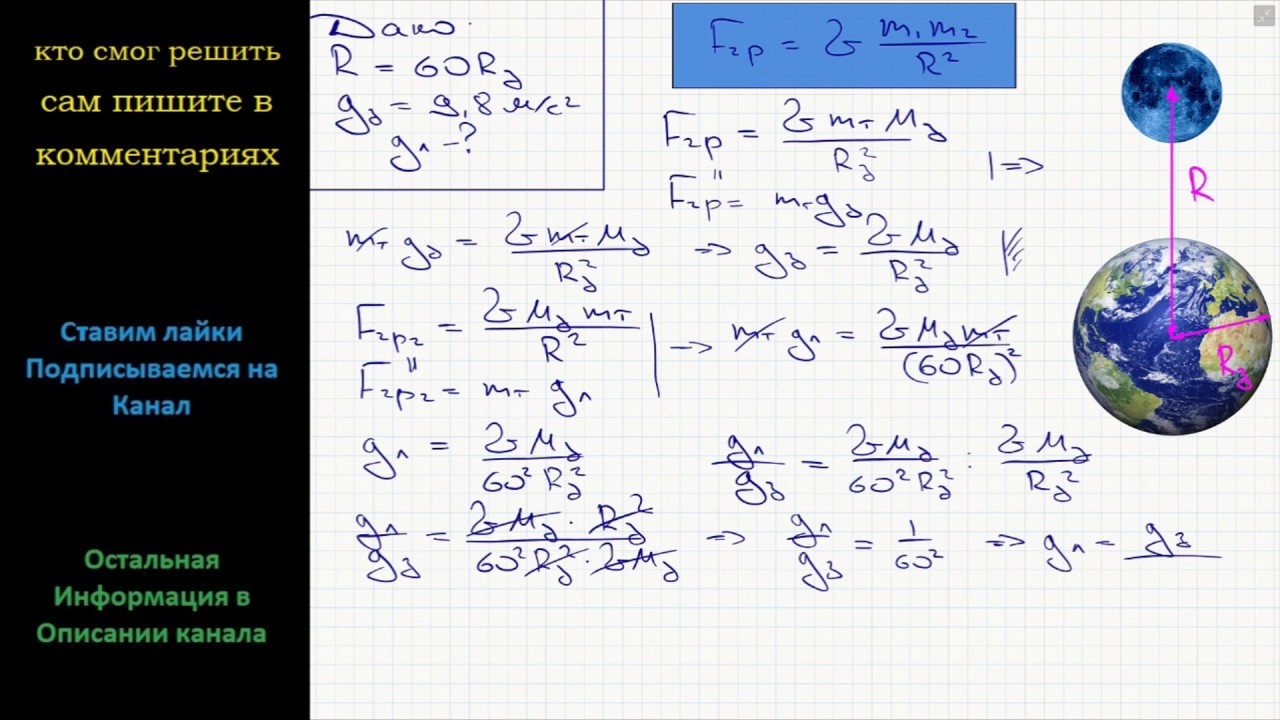 кто смог решить
сам пишите в
комментариях
Ставим лайки
Подписываемся на
Канал
Остальная
Информация в
Описании канала
Дано:
R = 60R₃
g₃ = 9,8 м/с²
gл – ?
Fгр = G m₁m₂ / R²
Fгр = G mт M₃ / R₃²
"
Fгр = mт g₃
| =>
mт g₃ = G mт M₃ / R₃² => g₃ = G M₃ / R₃²
Fгр₂ = G M₃ mт / R²
"
Fгр₂ = mт gл
| –> mт gл = G M₃ mт / (60R₃)²
gл = G M₃ / 60² R₃²
gл / g₃ = G M₃ / 60² R₃² : G M₃ / R₃²
gл / g₃ = G M₃ · R₃² / 60² R₃² · G M₃ => gл / g₃ = 1 / 60² => gл = g₃ /
R
R₃